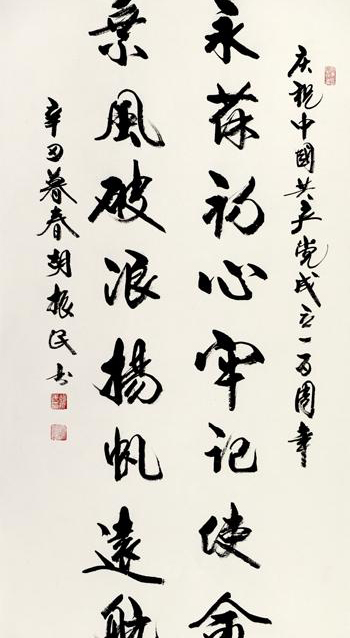 庆祝中國共产党成立一百周年
永葆初心牢记使命
乘風破浪揚帆遠航
辛丑暮春胡振民书